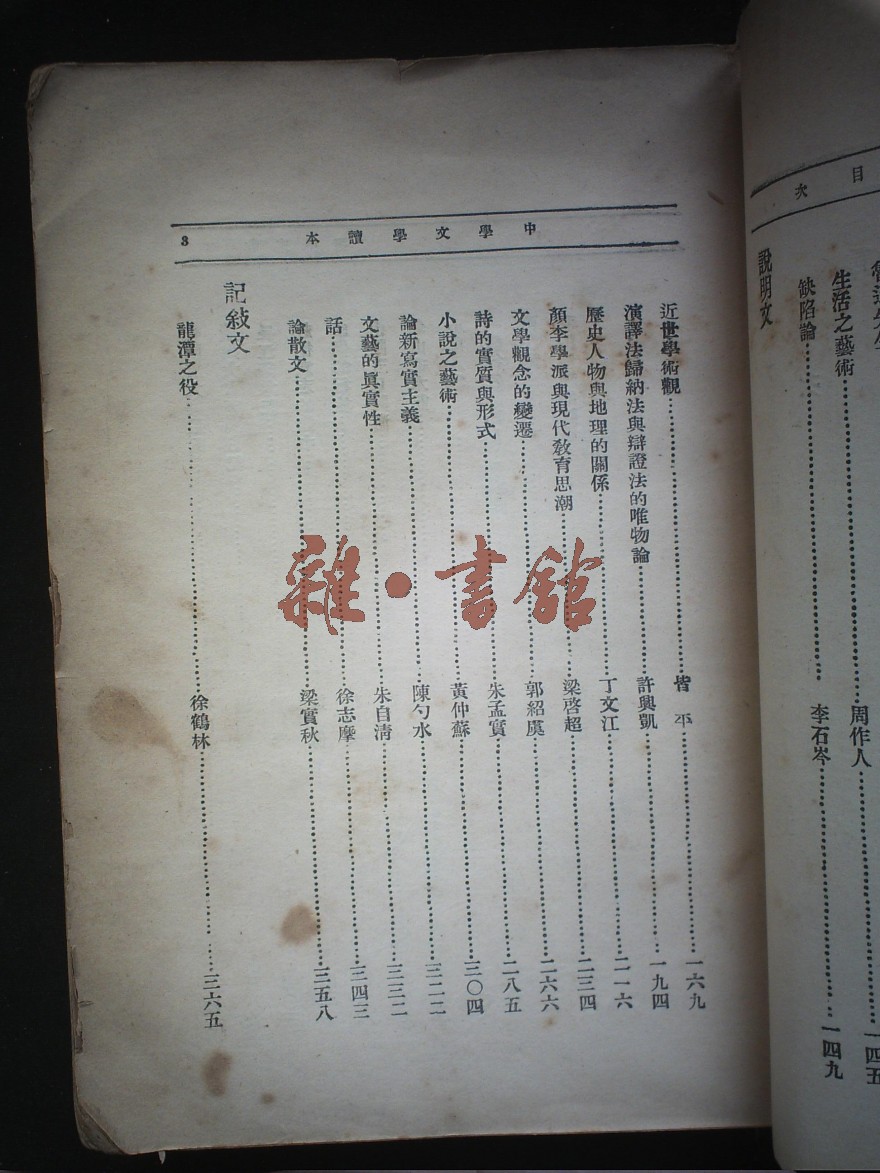 目次
生活之藝術 周作人 一四五
說明文
缺陷論 李石岑 一四九
中學文學讀本
3
近世學術觀 皆平 一六九
演譯法歸納法與辯證法的唯物論 許興凱 一九四
歷史人物與地理的關係 丁文江 二一六
顏李學派與現代教育思潮 梁啓超 二三四
文學觀念的變遷 郭紹虞 二六六
詩的實質與形式 朱孟實 二八五
小說之藝術 黃仲蘇 三〇四
論新寫實主義 陳勺水 三二二
文藝的眞實性 朱自清 三三二
話 徐志摩 三四三
論散文 梁實秋 三五八
記敍文
龍潭之役 徐鶴林 三六五
雜·書館